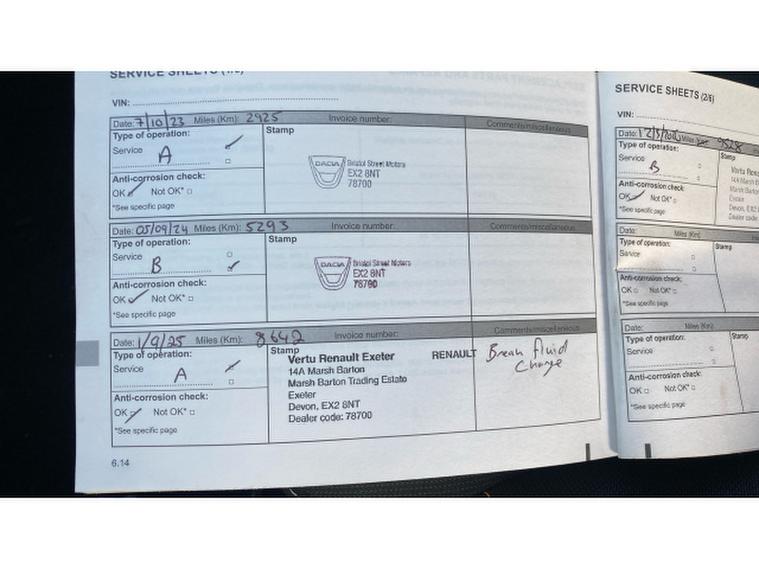 SERVICE SHEETS
VIN:
Date: 7/10/23 Miles (Km): 2925 Invoice number: Comments/miscellaneous
Type of operation: Stamp
Service A
DACIA Bristol Street Motors
EX2 8NT
78700
Anti-corrosion check:
OK Not OK*
*See specific page
Date: 05/09/24 Miles (Km): 5293 Invoice number: Comments/miscellaneous
Type of operation: Stamp
Service
B
DACIA Bristol Street Motors
EX2 8NT
78700
Anti-corrosion check:
OK Not OK*
*See specific page
Date: 1/9/25 Miles (Km): 8642 Invoice number: Comments/miscellaneous
Type of operation: Stamp
Service
A
Vertu Renault Exeter RENAULT
14A Marsh Barton
Marsh Barton Trading Estate
Exeter
Devon, EX2 8NT
Dealer code: 78700
Break fluid
Change
Anti-corrosion check:
OK Not OK*
*See specific page
6.14
SERVICE SHEETS (2/6)
VIN:
Date: Miles 9528
Type of operation: Stamp
Service
B
Vertu Rena
14A Marsh
Marsh Barton
Exeter
Devon, EX2
Dealer code:
Anti-corrosion check:
OK Not OK*
*See specific page
Date: Miles (Km):
Type of operation: Stamp
Service
Anti-corrosion check:
OK Not OK*
*See specific page
Date: Miles (Km):
Type of operation: Stamp
Service
Anti-corrosion check:
OK Not OK*
*See specific page